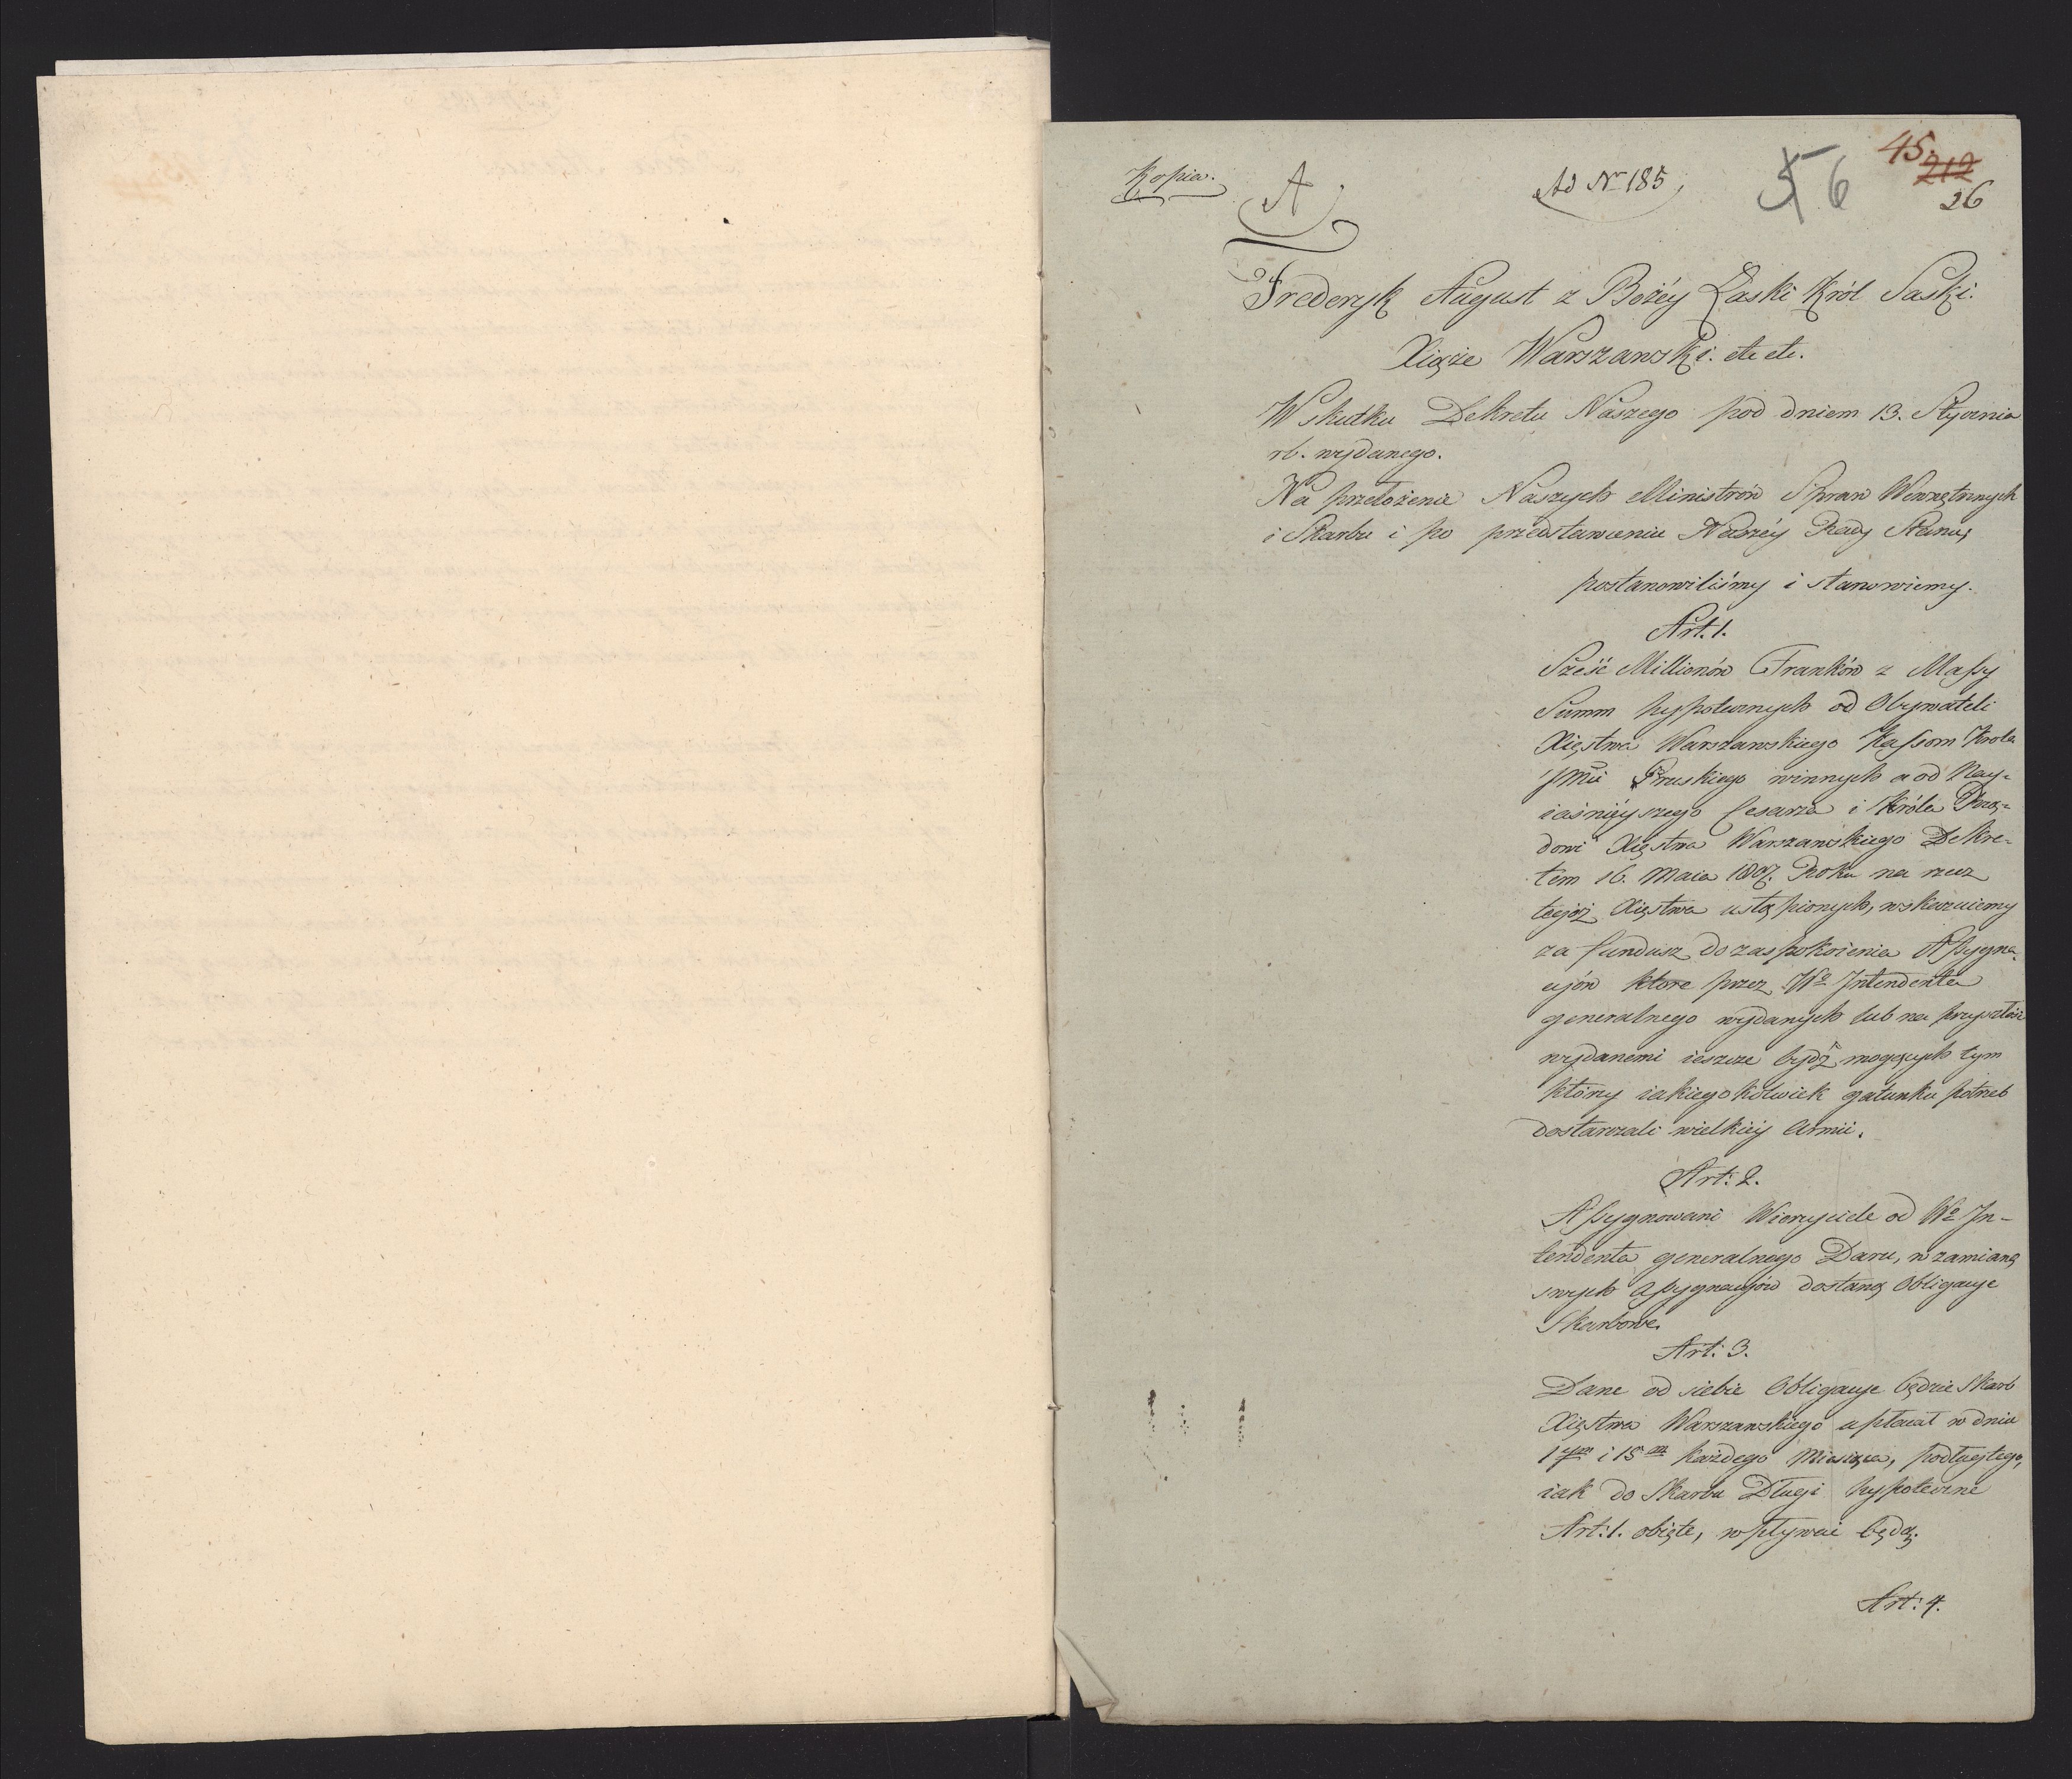 Kopia.
A
Ad Nr 185
5 6
45.
212
26
Frederyk August z Bożéy Łaski Król Saski.
Xiąże Warszawski. etc etc.
W skutku Dekretu Naszego pod dniem 13. Stycznia
rb. wydanego.
Na przełożenie Naszych Ministrów Spraw Wewnętrznych
i Skarbu i po przedstawieniu Naszéy Rady Stanu,
postanowiliśmy i stanowiemy.
Art. 1.
Sześć Millionów Franków z Massy
Summ hypotecznych od Obywateli
Xięstwa Warszawskiego Kassom Krola
Jmci Pruskiego winnych a od Nay-
iaśniéyszego Cesarza i Króla Rzą-
dowi Xięstwa Warszawskiego Dekre-
tem 16. Maia 1807. Roku na rzecz
tegoż Xięstwa ustąpionych, wskazuiemy
za fundusz do zaspokoienia Assygna-
cjów ktore przez Wo Jntendenta
generalnego wydanych lub na przyszłość
wydanemi ieszcze bydź mogących tym
którzy iakiegokolwiek gatunku potrzeb
dostarczali wielkiéy Armii.
Art: 2.
Assygnowani Wierzyciele od Wo Jn-
tendenta generalnego Daru, w zamianę
swych Assygnacyów dostaną Obligacye
Skarbowe.
Art: 3.
Dane od siebie Obligacye będzie Skarb
Xięstwa Warszawskiego upłacał w dniu
1ym i 15m każdego Miesiąca, podług tego,
iak do Skarbu Długi hypoteczne
Art: 1. obięte, wpływać będą.
Art: 4.